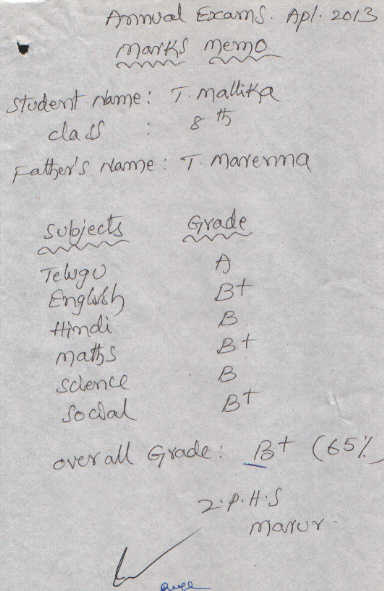 Annual Exams. Apl. 2013
Marks Memo
Student Name: T. Mallika
class : 8th
Father's Name: T. Marenna
Subjects Grade
Telugu A
English B+
Hindi B
maths B+
science B
social B+
overall Grade: B+ (65%
Z.P.H.S
Marur.